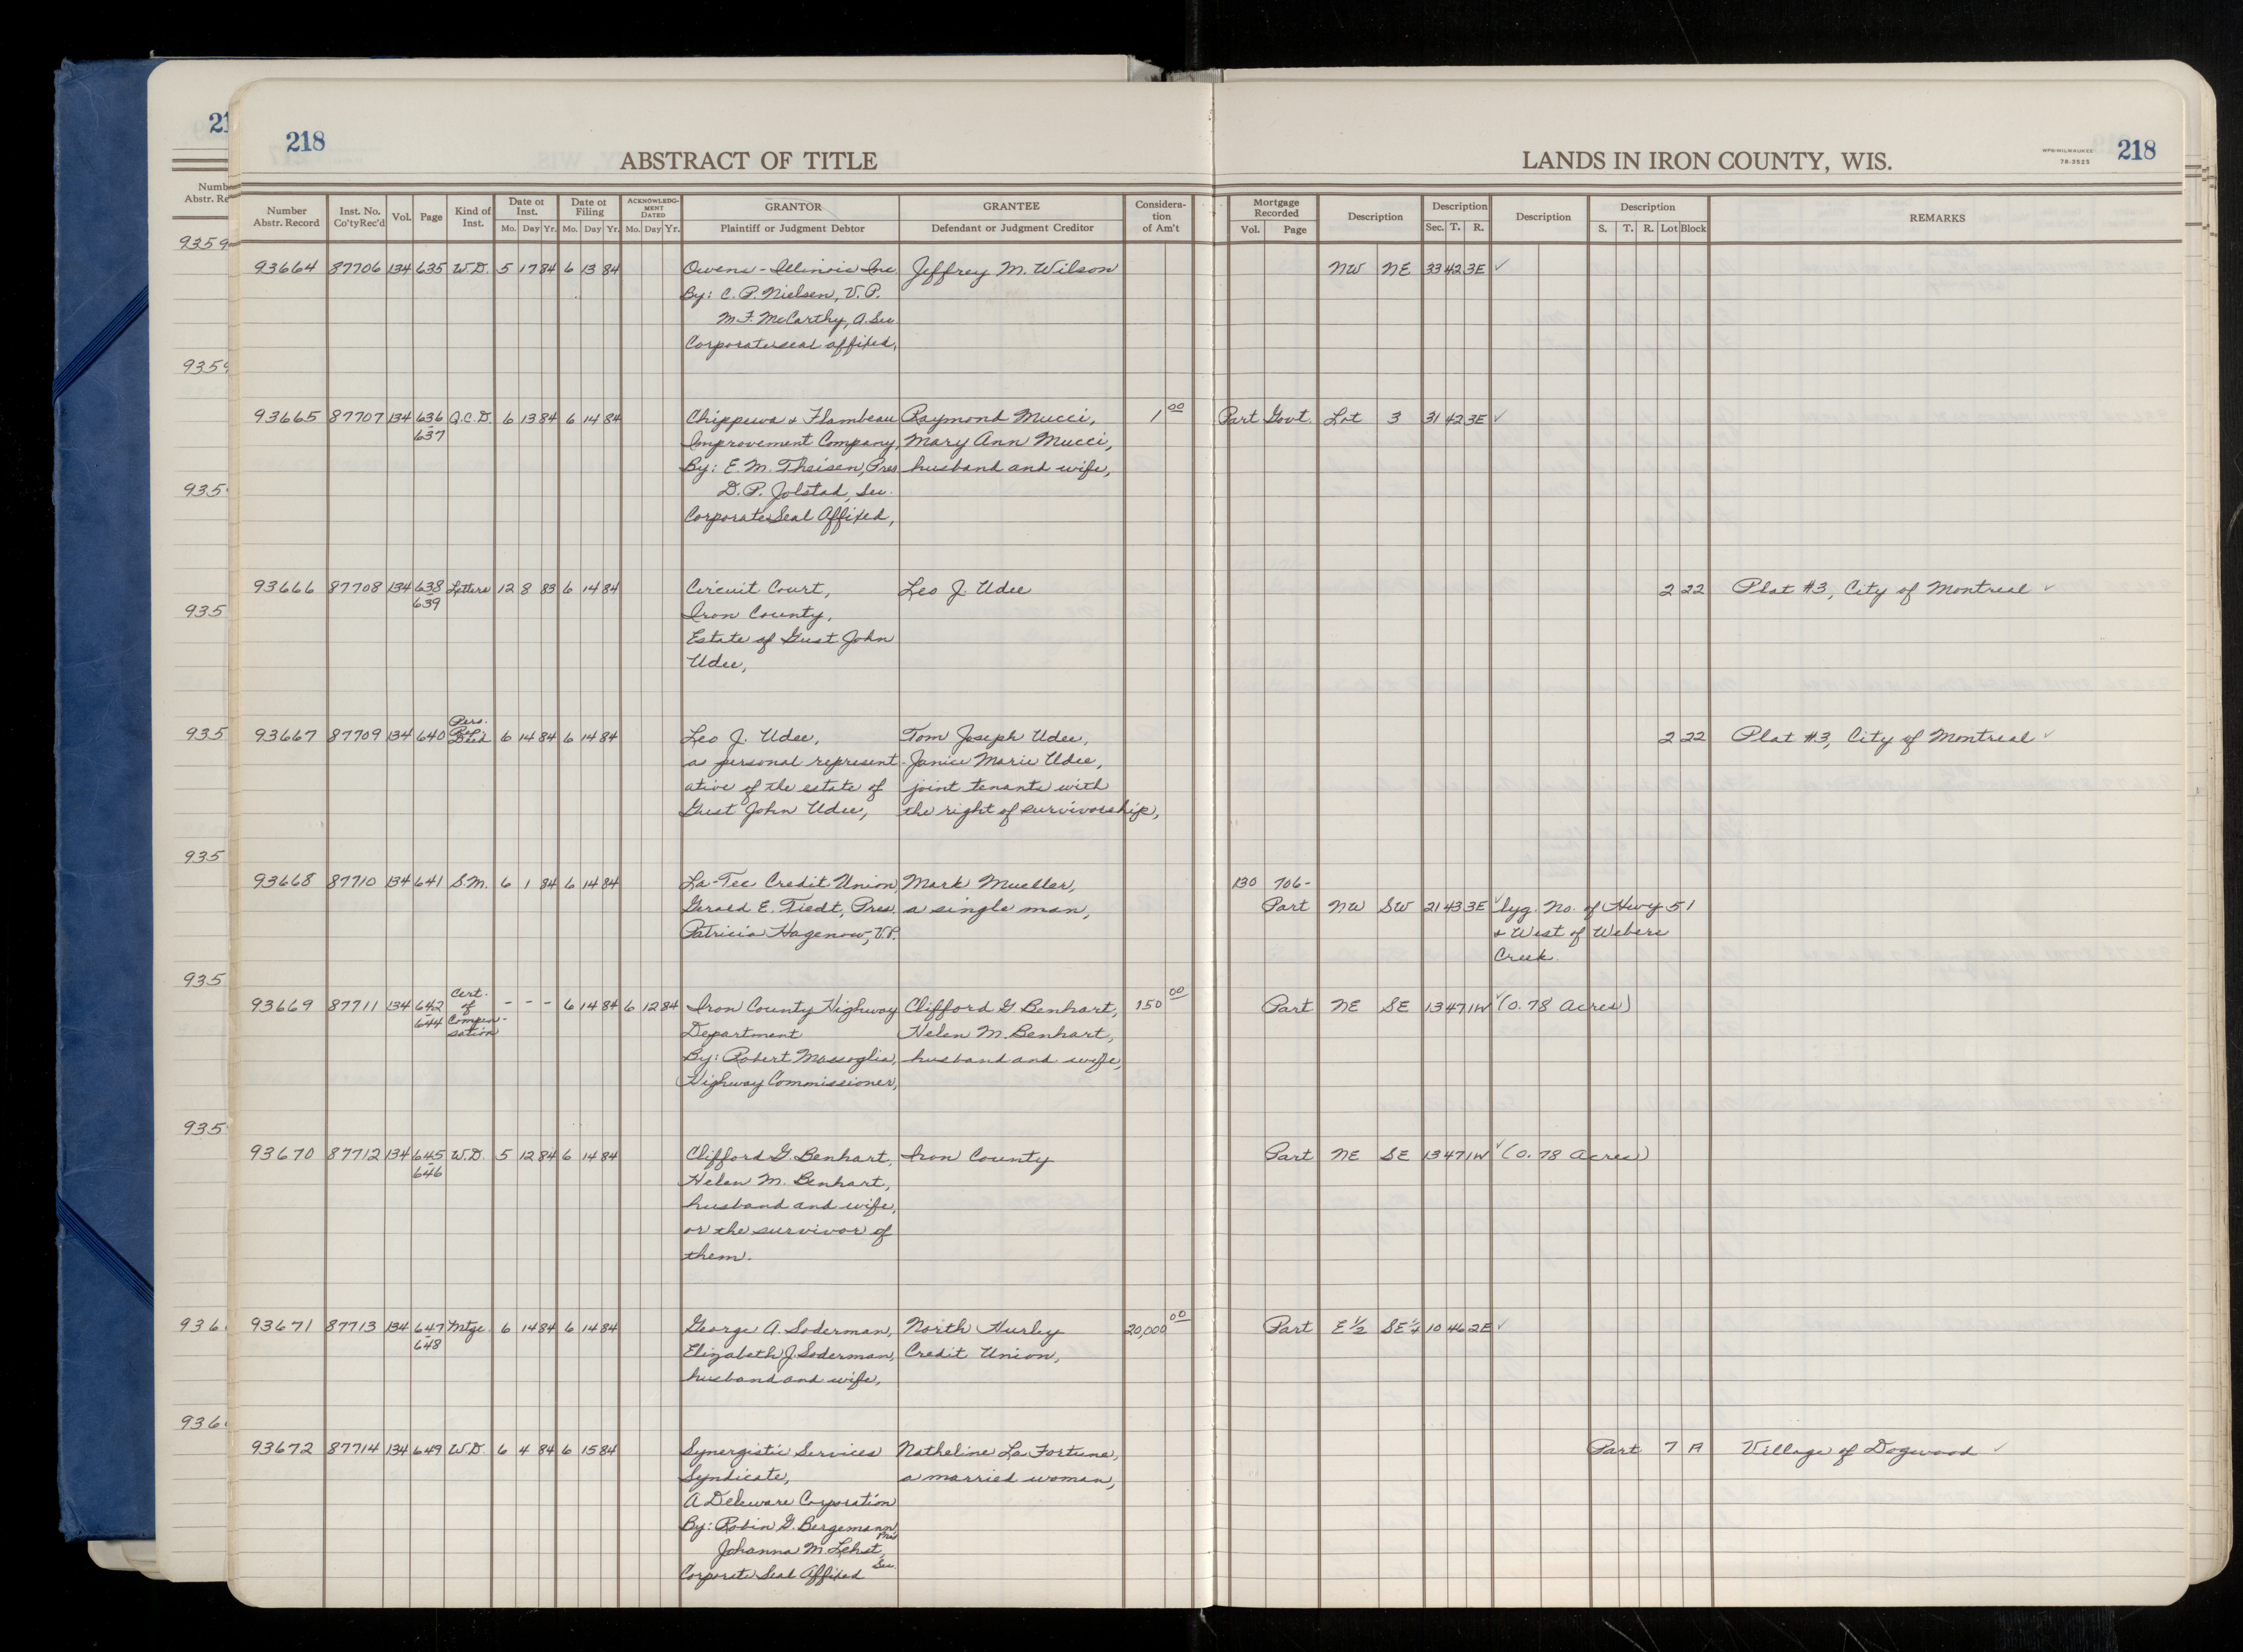 218
ABSTRACT OF TITLE
LANDS IN IRON COUNTY, WIS.
WPM-MILWAUKEE
78-3525
218
Number Abstr. Record Inst. No. Co'ty Rec'd Vol. Page Kind of Inst. Date of Inst. Mo. Day Yr. Date of Filing Mo. Day Yr. ACKNOWLEDGMENT DATED Mo. Day Yr. GRANTOR Plaintiff or Judgment Debtor GRANTEE Defendant or Judgment Creditor Consideration of Am't Mortgage Recorded Vol. Page Description Description Sec. T. R. Description Description S. T. R. Lot Block REMARKS
93664 87706 134 635 W.D. 5 17 84 6 13 84 Owens-Illinois Inc Jeffrey M. Wilson NW NE 33 42 3E ✓
By: C. P. Nielsen, V.P.
M.F. McCarthy, A. Sec
Corporate seal affixed,
93665 87707 134 636 Q.C.D. 6 13 84 6 14 84 Chippewa & Flambeau Raymond Mucci, 1 00 Part Govt. Lot 3 31 42 3E ✓
-637 Improvement Company, Mary Ann Mucci,
By: E. M. Theisen, Pres husband and wife,
D. P. Jolstad, Sec.
Corporate Seal Affixed,
93666 87708 134 638 Letters 12 8 83 6 14 84 Circuit Court, Leo J. Udee 2 22 Plat #3, City of Montreal ✓
-639 Iron County,
Estate of Gust John
Udee,
93667 87709 134 640 Pers. Rep. Deed 6 14 84 6 14 84 Leo J. Udee, Tom Joseph Udee, 2 22 Plat #3, City of Montreal ✓
as personal represent- Janice Marie Udee,
ative of the estate of joint tenants with
Gust John Udee, the right of survivorship,
93668 87710 134 641 S.M. 6 1 84 6 14 84 La-Tec Credit Union, Mark Mueller, 130 706-
Gerald E. Tiedt, Pres. a single man, Part NW SW 21 43 3E ✓ lyg. No. of Hwy 51
Patricia Hagenow, V.P. & West of Webers
Creek.
93669 87711 134 642 Cert. of Compen-sation - - - 6 14 84 6 12 84 Iron County Highway Clifford G. Benhart, 150 00 Part NE SE 13 47 1W ✓ (0.78 Acres)
-644 Department Helen M. Benhart,
By: Robert Massoglia, husband and wife,
Highway Commissioner,
93670 87712 134 645 W.D. 5 12 84 6 14 84 Clifford G. Benhart, Iron County Part NE SE 13 47 1W ✓ (0.78 Acres)
-646 Helen M. Benhart,
husband and wife,
or the survivor of
them.
93671 87713 134 647 Mtge. 6 14 84 6 14 84 George A. Soderman, North Hurley 20,000 00 Part E½ SE¼ 10 46 2E ✓
-648 Elizabeth J. Soderman, Credit Union,
husband and wife,
93672 87714 134 649 W.D. 6 4 84 6 15 84 Synergistic Services Natheline La Fortune, Part 7 A Village of Dogwood ✓
Syndicate, a married woman,
A Deleware Corporation
By: Robin G. Bergemann, Pres
Johanna M. Lehst, Sec.
Corporate Seal Affixed